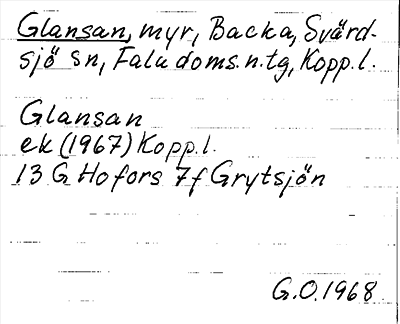 Glansan, myr, Backa, Svärd-
sjö sn, Falu doms.n.tg, Kopp.l.
Glansan
ek (1967) Kopp.l.
13 G Hofors 7f Grytsjön
G.O.1968